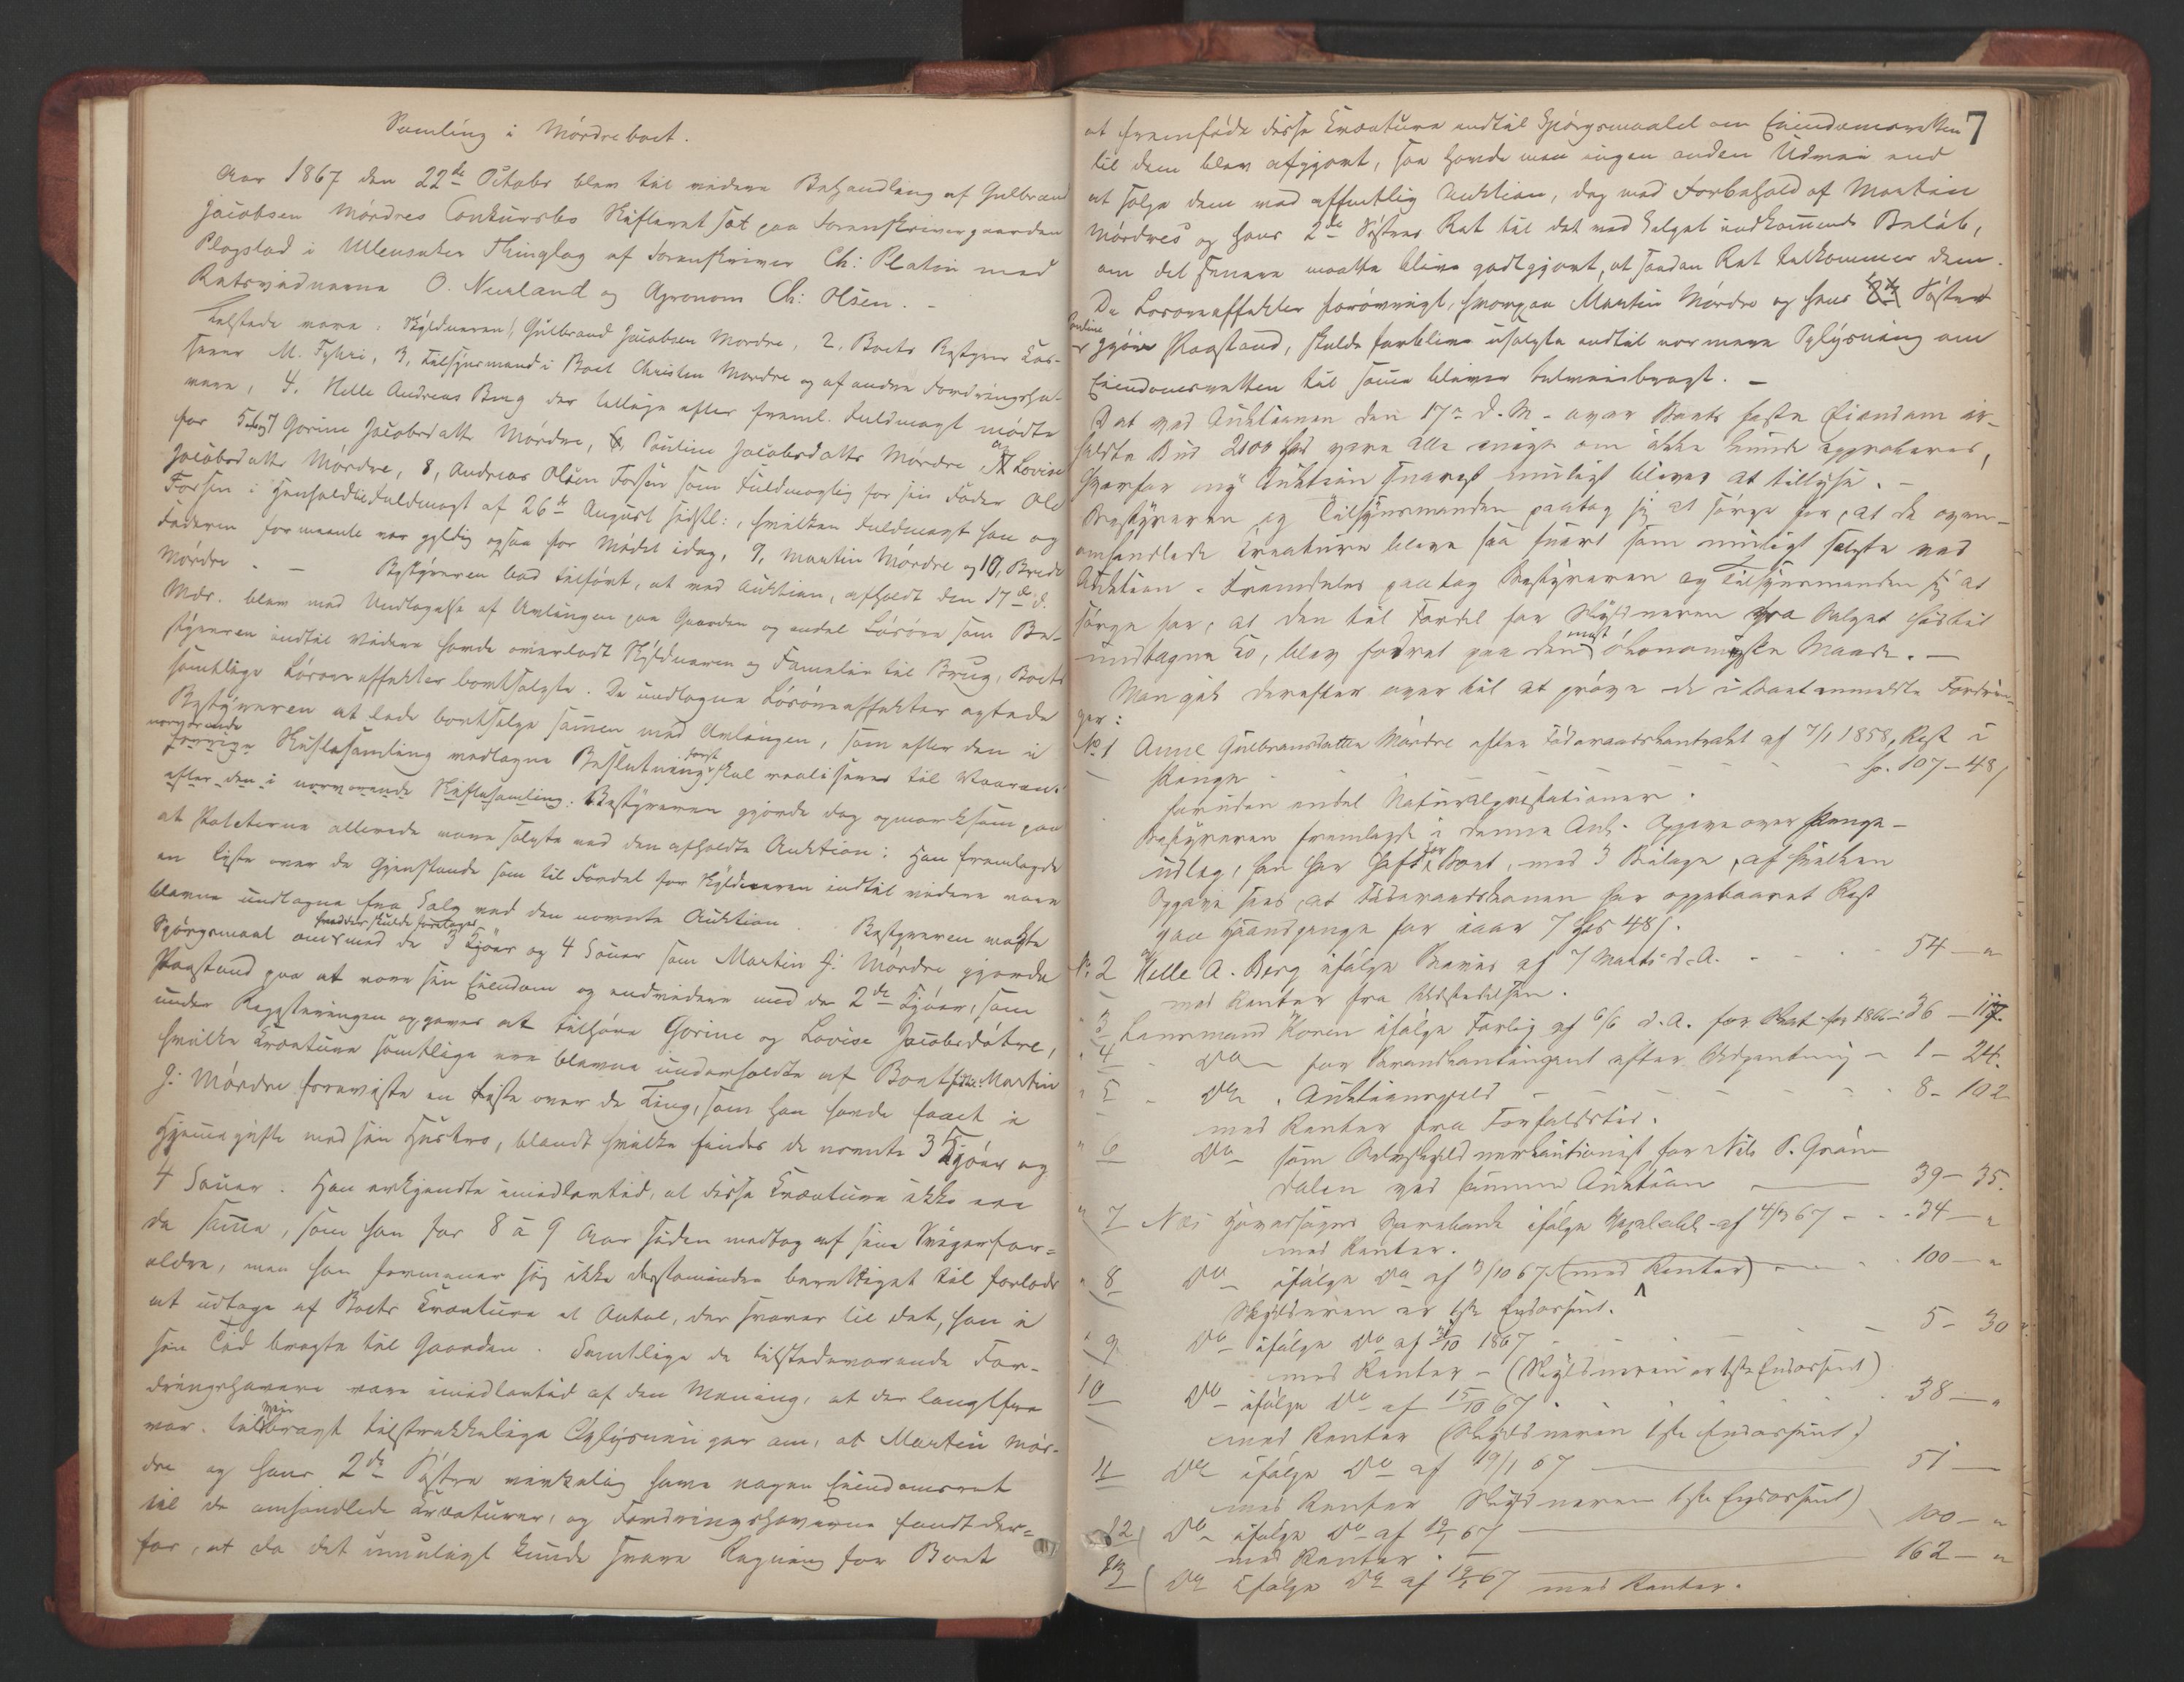 Samling i Mórdreboet.
Aar 1867 den 22de Octobr blev til videre Behandling af Gulbrand
Jacobsen Mórdres Concursbo Skifteret sat paa Sorenskrivergaarden
Plogstad i Ullensaker Thinglag af Sorenskriver Ch: Platou med
Retsvidnerne O. Neuland og Agronom Ch: Olsen. -
Tilstede vare: Skyldneren, Gulbrand Jacobsen Mordre, 2, Boets Bestyrer Cas-
serer M. Fyhri, 3, Tilsynsmand i Boet Christen Mordre og af andre Fordringsha-
vere, 4, Helle Andreas Berg der tillige efter freml. Fuldmagt mødte
for 5, 6 og 7 Gorine Jacobsdatter Mórdre, Pauline Jacobsdatter Mórdre og Lovise
Jacobsdatter Mórdre, 8, Andreas Olsen Forsen som Fuldmægtig for sin Fader Ole
Forsen i Henhold til Fuldmagt af 26de August sidstl:, hvilken Fuldmagt han og
Faderen formeente var gyldig ogsaa for Mødet idag, 9, Martin Mórdre og 10, Brede
Mórdre. - Bestyreren bad tilført, at ved Auktion, afholdt den 17de d.
Mdr. blev med Undtagelse af Avlingen paa Gaarden og endel Lósóre som Be-
styreren indtil videre havde overladt Skyldneren og Familie til Brug, Boets
samtlige Lósóreeffekter bortsolgte. De undtagne Lósóreeffekter agtede
Bestyreren at lade bortsælge sammen med Avlingen, som efter den i
nærværende
forrige Skiftesamling vedtagne Beslutning først skal realiseres til Vaaren.
efter den i nærværende Skiftesamling: Bestyreren gjorde dog opmærksom paa
at Poteterne allerede vare solgte ved den afholdte Auktion: Han fremlagde
en Liste over de Gjenstande som til Fordel for Skyldneren indtil videre vare
blevne undtagne fra Salg ved den nævnte Auktion. Bestyreren vakte
Spórgsmaal om hvad der skulde foretages med de 3 Kjóer og 4 Sauer som Martin J: Mórdre gjorde
Paastand paa at være sin Eiendom og endvidere med de 2de Kjóer, som
under Registreringen opgaves at tilhóre Gorine og Lovise Jacobsdótre,
hvilke Kreature samtlige ere blevne underholdte af Boet. Martin
J: Mórdre foreviste en Liste over de Ting, som han havde faaet i
Hjemmegifte med sin Hustru, blandt hvilke findes de nævnte 3 Kjóer og
4 Sauer. Han erkjendte imidlertid, at disse Kreature ikke ere
de samme, som han for 8 a 9 Aar siden modtog af sine Svigerfor-
ældre, men han formener sig ikke destomindre berettiget til forlods
at udtage af Boets Kreature et Antal, der svarer til det, han i
sin Tid bragte til Gaarden. Samtlige de tilstedeværende For-
dringshavere vare imidlertid af den Mening, at der langtfra
var tilveiebragt tilstrækkelige Oplysninger om, at Martin Mór-
dre og hans 2de Sóstre virkelig have nogen Eiendomsret
til de omhandlede Kreaturer, og Fordringshaverne fandt der-
for, at da det umuligt kunde svare Regning for Boet
7
at fremføde disse Kreature indtil Spórgsmaalet om Eiendomsretten
til dem blev afgjort, saa havde man ingen anden Udvei end
at sælge dem ved offentlig Auktion, dog med Forbehold af Martin
Mórdres og hans 2de Sóstres Ret til det ved Salget indkommende Beløb,
om det senere maatte blive godtgjort, at saadan Ret tilkommer dem.
De Lósóreeffekter forøvrigt, hvorpaa Martin Mórdre og hans Sóster
Pauline gjóre Paastand, skulde forblive usolgte indtil nærmere Oplysning om
Eiendomsretten til samme bliver tilveiebragt. -
Det ved Auktionen den 17de d. M. over Boets faste Eiendom er-
holdte Bud 2100 Spd vare alle enige om ikke kunde approberes,
hvorfor ny Auktion snarest muligt bliver at tillyse. -
Bestyreren og Tilsynsmanden paatog sig at sórge for, at de oven-
omhandlede Kreature bleve saa snart som muligt solgte ved
Auktion. Fremdeles paatog Bestyreren og Tilsynsmanden sig at
sórge for, at den til Fordel for Skyldneren fra Salget hidtil
undtagne Ko, blev fodret paa den mest ókonomiske Maade. -
Man gik derefter over til at próve de i Boet anmeldte Fordrin-
ger:
No 1 Anne Gulbrandsdatter Mórdre efter Fóderaadskontrakt af 7/1 1858, Rest i
Penge - - - Sp. 107-48 s
foruden endel Naturalprestationer.
Bestyreren fremlagde i denne Anl. Opgave over Penge-
udlæg, han har havt for Boet, med 3 Bilage, af hvilken
Opgave sees, at Fóderaadskonen har oppebaaret Rest
paa Haandpenge for iaar 7 Spd 48 s.
No 2 Helle A. Berg ifólge Beviis af 7 Marts d. A. - - - 54 - "
med Renter fra Udstedelsen.
" 3 Lensmand Koren ifólge Forlig af 6/6 d. A. for Skat for 1866 - 36 - 117.
" 4 - Do - for Brandkontingent efter Udpantning - 1 - 24.
" 5 - Do - Auktionsgjæld - - - 8 - 102
med Renter fra Forfaldstid.
" 6 Do som Selvskyldnerkautionist for Nils P. Grón-
dalen ved samme Auktion - 39 - 35.
" 7 Næs Hovedsogns Sparebank ifólge Vexelobl. af 4/3 67 - - - 34 - "
med Renter.
" 8 Do ifólge Do af 3/10 67 (med Renter) - - - 100 - "
Skyldneren er 1ste Endossent.
" 9 Do ifólge Do af 3/10 1867 - - - 5 - 30
med Renter - (Skyldneren er 1ste Endossent)
10 Do ifólge Do af 15/10 67 - - - 38 - "
med Renter (Skyldneren 1ste Endossent)
11 Do ifólge Do af 19/1 67 - 51 -
med Renter Skyldneren 1ste Endossent)
12 Do ifólge Do af 12/7 67 - 100 - "
med Renter.
13 Do ifólge Do af 67 med Renter. 162 - "